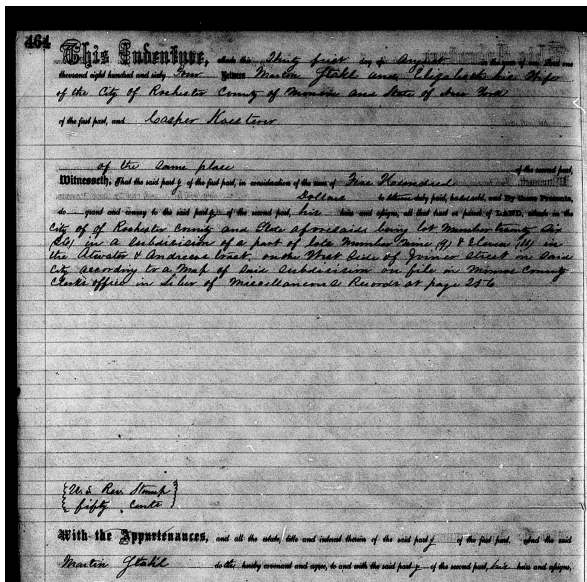 464
This Indenture, made this Thirty first day of August in the year of our Lord one
thousand eight hundred and sixty Four Between Martin Stahl and Elizabeth his Wife
of the City of Rochester County of Monroe and State of New York
of the first part, and Casper
of the Same place of the second part,
Witnesseth, That the said part y of the first part, in consideration of the sum of Five Hundred
Dollars to duly paid, sold, and By these Presents,
do grant and convey to the said part y of the second part, his heirs and assigns, all that tract or parcel of LAND, situate in the
City of of Rochester County and State aforesaid being lot Number twenty Six
(26) in a Subdivision of a part of lots Number Nine (9) & Eleven (11) in
the Atwater & Andrews tract, on the West Side of Joiner Street in Said
City according to a Map of Said Subdivision on file in Monroe County
Clerks office in Liber of Miscellaneous Records at page 256
U.S. Rev. Stamp
fifty Cents
With the Appurtenances, and all the estate, title and interest therein of the said part y of the first part, And the said
Martin Stahl do hereby covenant and agree, to and with the said part y of the second part, his heirs and assigns,